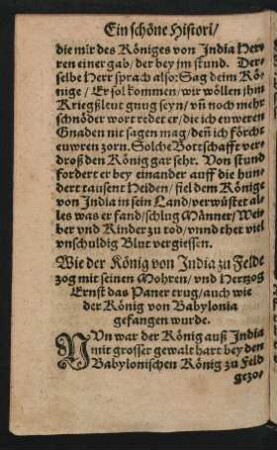 Ein schöne Histori/
die mir des Königes von India Her⸗
ren einer gab/ der bey jm stund. Der⸗
selbe Herr sprach also: Sag deim Kö⸗
nige/ Er sol kommen/ wir wöllen jhm
Kriegßleut gnug seyn/ vñ noch mehr
schnöder wort redet er/ die ich euweren
Gnaden nit sagen mag/ deñ ich förcht
euwren zorn. Solche Bottschafft ver⸗
droß den König gar sehr. Von stund
fordert er bey einander auff die hun⸗
dert tausent Heiden/ fiel dem Könige
von India in sein Land/ verwüstet al⸗
les was er fand/ schlug Männer/ Wei⸗
ber vnd Kinder zu tod/ vnnd thet viel
vnschuldig Blut vergiessen.
Wie der König von India zu Felde
zog mit seinen Mohren/ vnd Hertzog
Ernst das Paner trug/ auch wie
der König von Babylonia
gefangen wurde.
NVn war der König auß India
mit grosser gewalt hart bey den
Babylonischen König zu Feld
gezo⸗